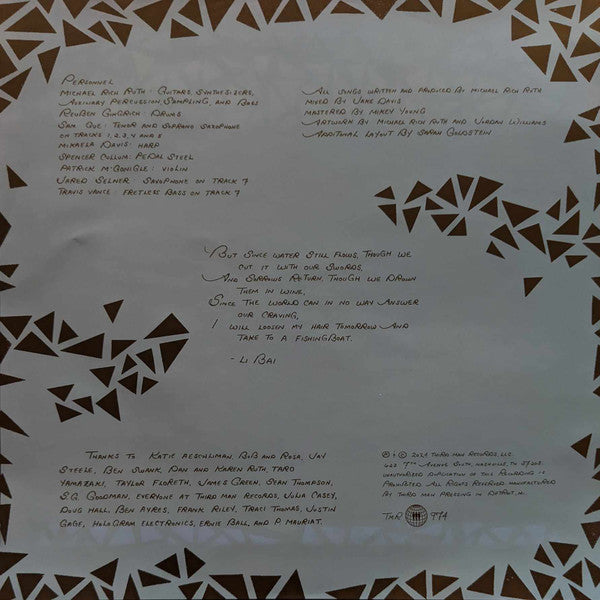 Personnel
Michael Rich Ruth: Guitars, Synthesizers,
Auxiliary Percussion, Sampling, and Bass
Reuben Gingrich: Drums
Sam Que: Tenor and Soprano Saxophone
on Tracks 1, 2, 3, 4 and 5
Mikaela Davis: Harp
Spencer Cullum: Pedal Steel
Patrick M'Gonigle: Violin
Jared Selner: Saxophone on Track 7
Travis Vance: Fretless Bass on Track 7
All Songs Written and Produced by Michael Rich Ruth
Mixed by Jake Davis
Mastered by Mikey Young
Artwork by Michael Rich Ruth and Jordan Williams
Additional Layout by Sarah Goldstein
But since water still flows, though we
cut it with our swords,
And sorrows return, though we drown
them in wine,
Since the world can in no way answer
our craving,
I will loosen my hair tomorrow and
take to a fishingboat.
- Li Bai
Thanks to Katie Aeschliman, Bib and Rosa, Jay
Steele, Ben Swank, Dan and Karen Ruth, Taro
Yamazaki, Taylor Floreth, James Green, Sean Thompson,
S.G. Goodman, everyone at Third Man Records, Julia Casey,
Doug Hall, Ben Ayres, Frank Riley, Traci Thomas, Justin
Gage, Hologram Electronics, Ernie Ball, and P Mauriat.
℗ & © 2024 Third Man Records, LLC.
623 7th Avenue South, Nashville, TN 37203.
Unauthorized Duplication of this Recording is
Prohibited. All Rights Reserved. Manufactured
by Third Man Pressing in Detroit, MI.
TMR 974